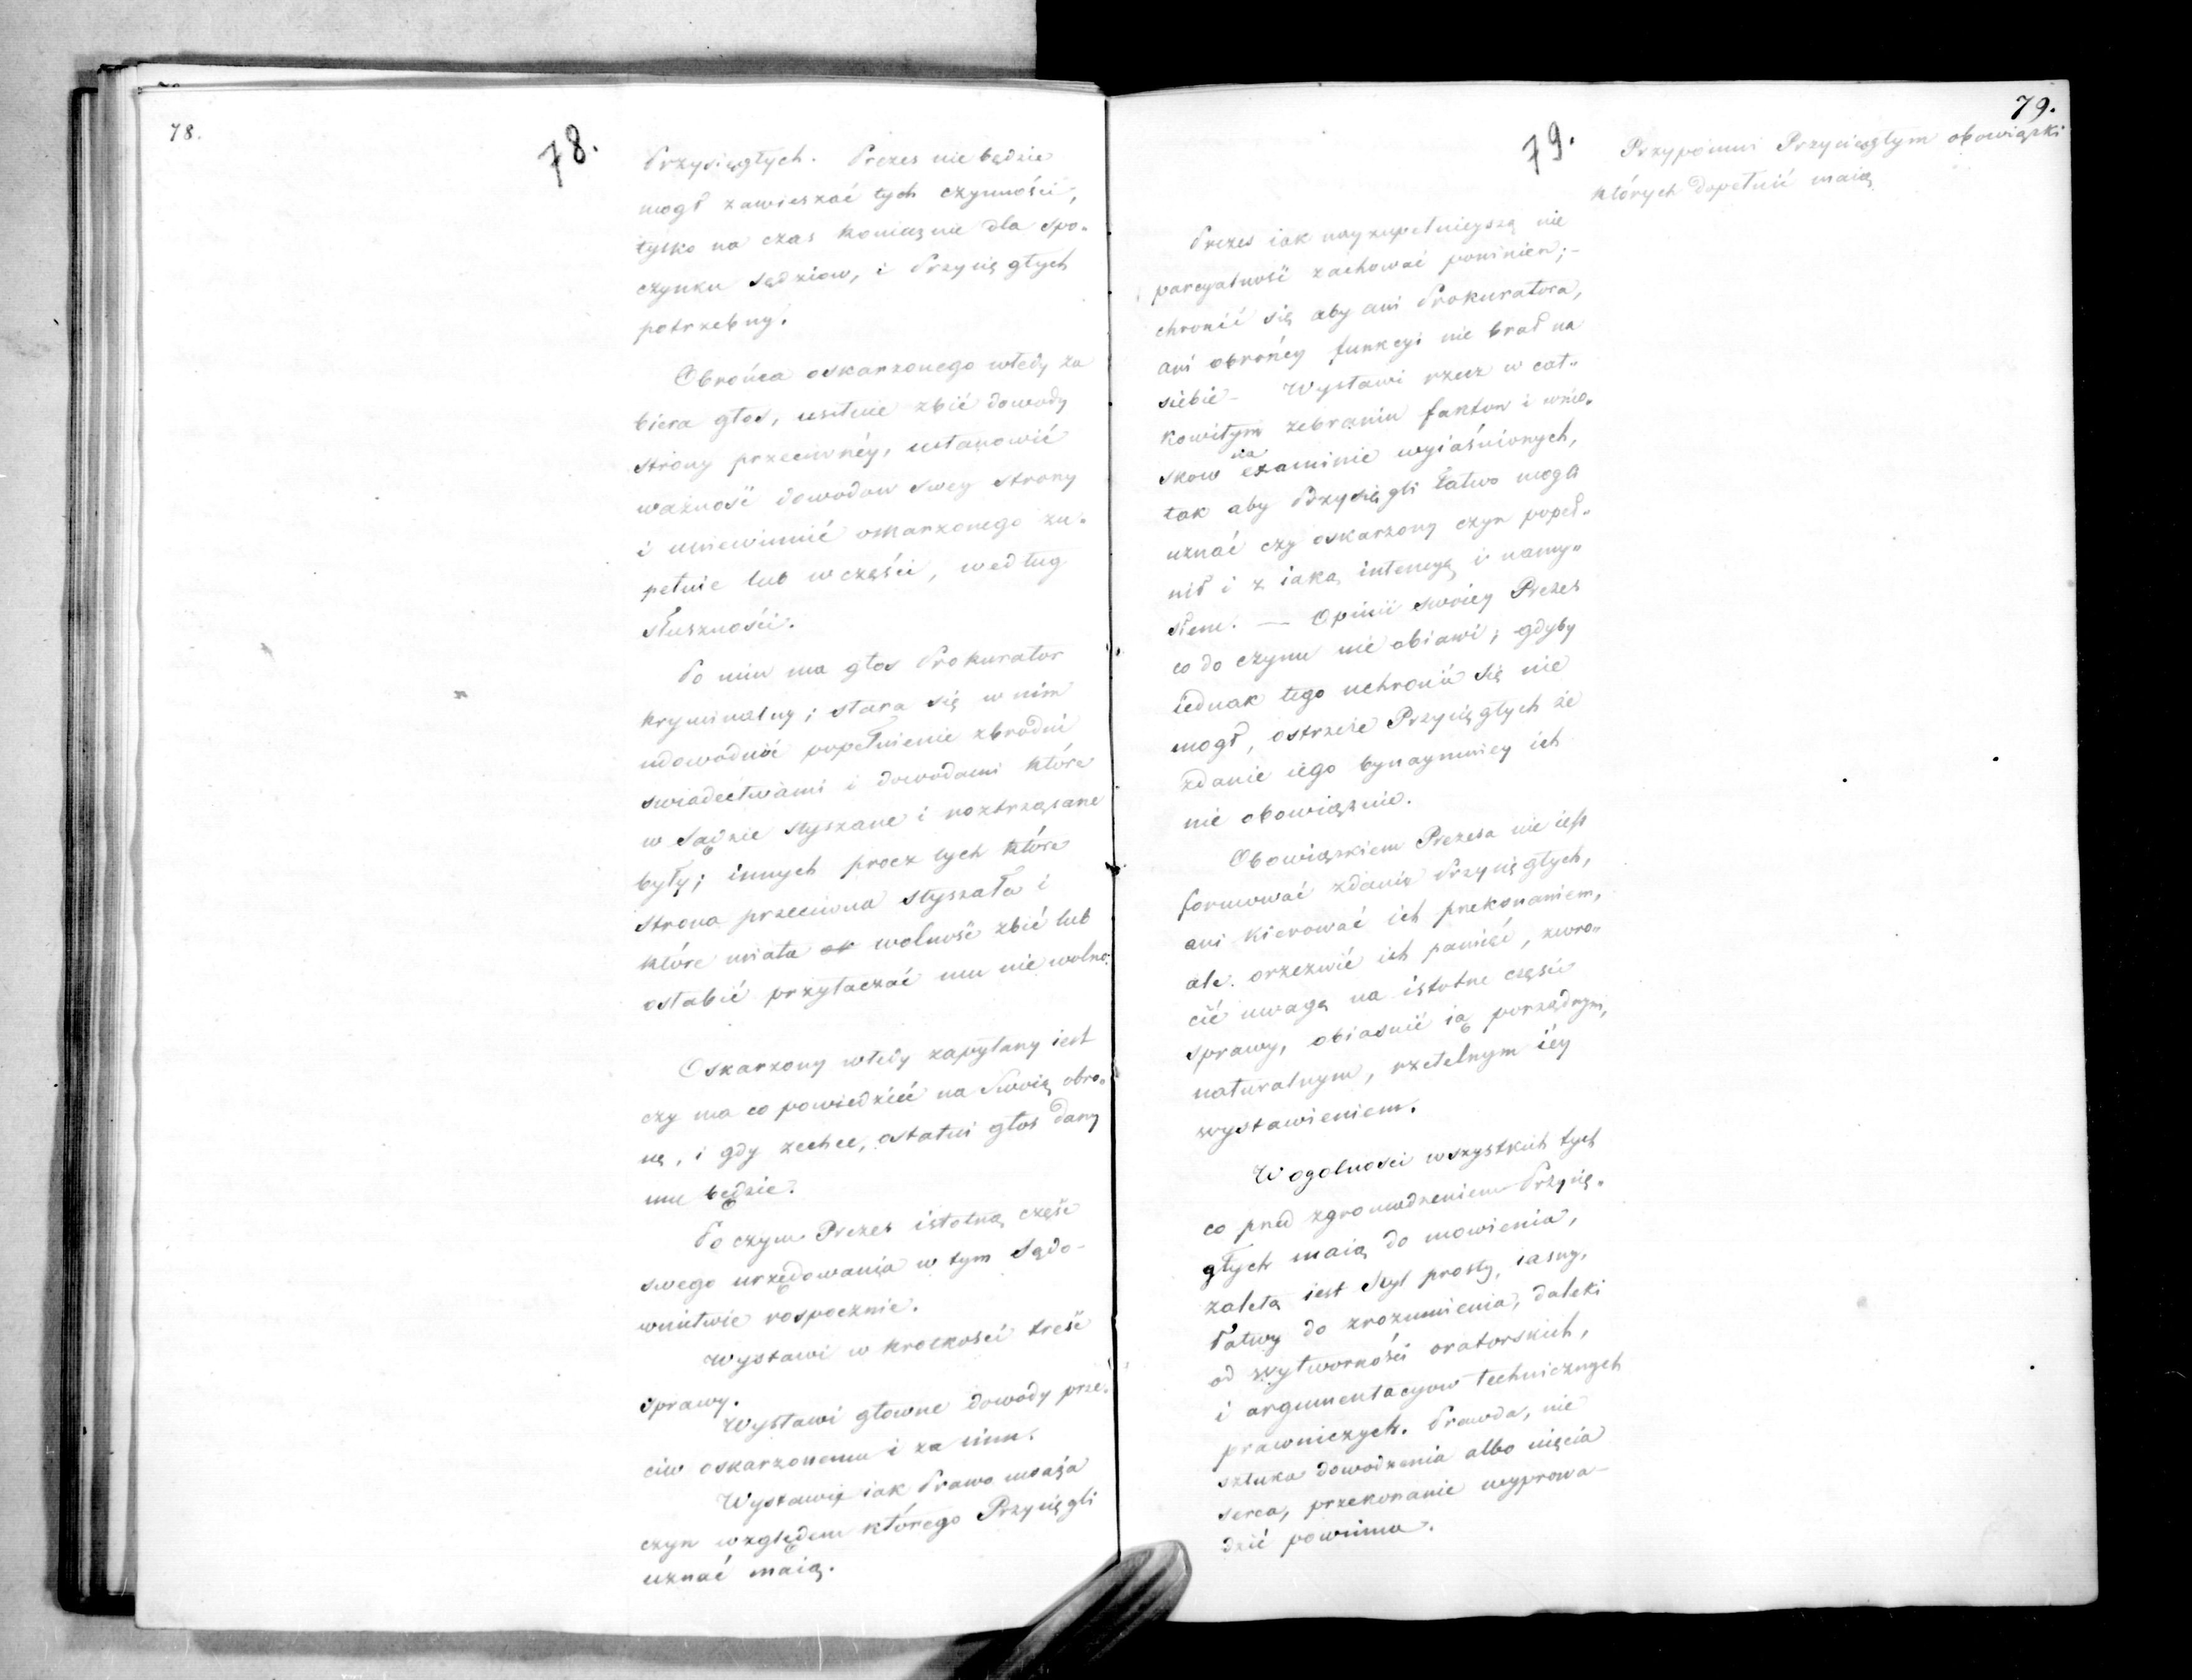 78.
78.
Przysięgłych. Prezes nie będzie
mogł zawieszać tych czynności,
tylko na czas koniecznie dla spo-
czynku sędziow, i Przysięgłych
potrzebny.
Obrońca oskarzonego wtedy za
biera głos, usilnie zbić dowody
strony przeciwnéy, ustanowić
ważność dowodow swey strony
i uniewinnić oskarzonego zu-
pełnie lub w części, według
słuszności.
Po nim ma głos Prokurator
kryminalny; stara się w nim
udowodnić popełnienie zbrodni
swiadectwami i dowodami które
w Sądzie słyszane i roztrząsane
były; innych procz tych które
strona przeciwna słyszała i
które miała wolność zbić lub
osłabić przytaczać mu nie wolno.
Oskarzony wtedy zapytany iest
czy ma co powiedzieć na Swoią obro-
nę, i gdy zechce, ostatni głos dany
mu będzie.
Po czym Prezes istotną część
swego urzędowania w tym Sądo-
wnictwie rospocznie.
Wystawi w krotkości treść
sprawy.
Wystawi głowne dowody prze-
ciw oskarzonemu i za nim.
Wystawi iak Prawo uważa
czyn względem którego Przysięgli
uznać maią.
79.
79.
Przypomni Przysięgłym obowiązki
których dopełnić maią
Prezes iak nayzupełnieyszą nie
parcyalność zachować powinien;-
chronić się aby ani Prokuratora,
ani obrońcy funkcyi nie brał na
siebie - Wystawi rzecz w cał-
kowitym zebraniu faktow i wnio-
skow na examinie wyiaśnionych,
tak aby Przysięgli łatwo mogli
uznać czy oskarzony czyn popeł-
nił i z iaką intencyą i namy-
słem. — Opinii swoiey Prezes
co do czynu nie obiawi; gdyby
iednak tego uchronić się nie
mogł, ostrzeże Przysięgłych że
zdanie iego bynaymniey ich
nie obowiązuie.
Obowiązkiem Prezesa nie iest
formować zdanie Przysięgłych,
ani kierować ich przekonaniem,
ale orzezwić ich pamięć, zwro-
cić uwagę na istotne części
sprawy, obiasnić ią porządnym,
naturalnym, rzetelnym iéy
wystawieniem.
W ogolnosci wszystkich tych
co przed zgromadzeniem Przysię-
głych maią do mowienia,
zaletą iest Styl prosty, iasny,
łatwy do zrozumienia, daleki
od wytworności oratorskich,
i argumentacyow technicznych
prawniczych. Prawda, nie
sztuka dowodzenia albo uięcia
serca, przekonanie wyprowa-
dzić powinna.